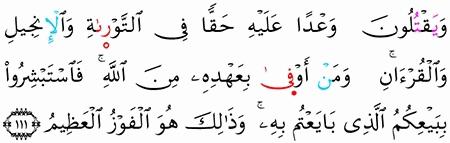 وَيَقۡتُلُونَ وَعۡدًا عَلَيۡهِ حَقّٗا فِي ٱلتَّوۡرَىٰةِ وَٱلۡإِنجِيلِ
وَٱلۡقُرۡءَانِۚ وَمَنۡ أَوۡفَىٰ بِعَهۡدِهِۦ مِنَ ٱللَّهِۚ فَٱسۡتَبۡشِرُواْ
بِبَيۡعِكُمُ ٱلَّذِي بَايَعۡتُم بِهِۦۚ وَذَٰلِكَ هُوَ ٱلۡفَوۡزُ ٱلۡعَظِيمُ ١١١